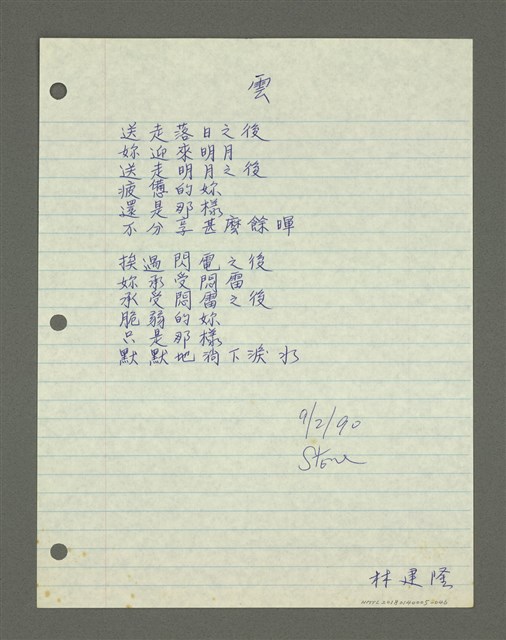 雲
送走落日之後
妳迎來明月
送走明月之後
疲憊的妳
還是那樣
不分享甚麼餘暉
挨過閃電之後
妳承受悶雷
承受悶雷之後
脆弱的妳
只是那樣
默默地淌下淚水
9/2/90
Stone
林建隆